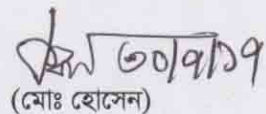 ৩০/৭/১৭
(মোঃ হোসেন)